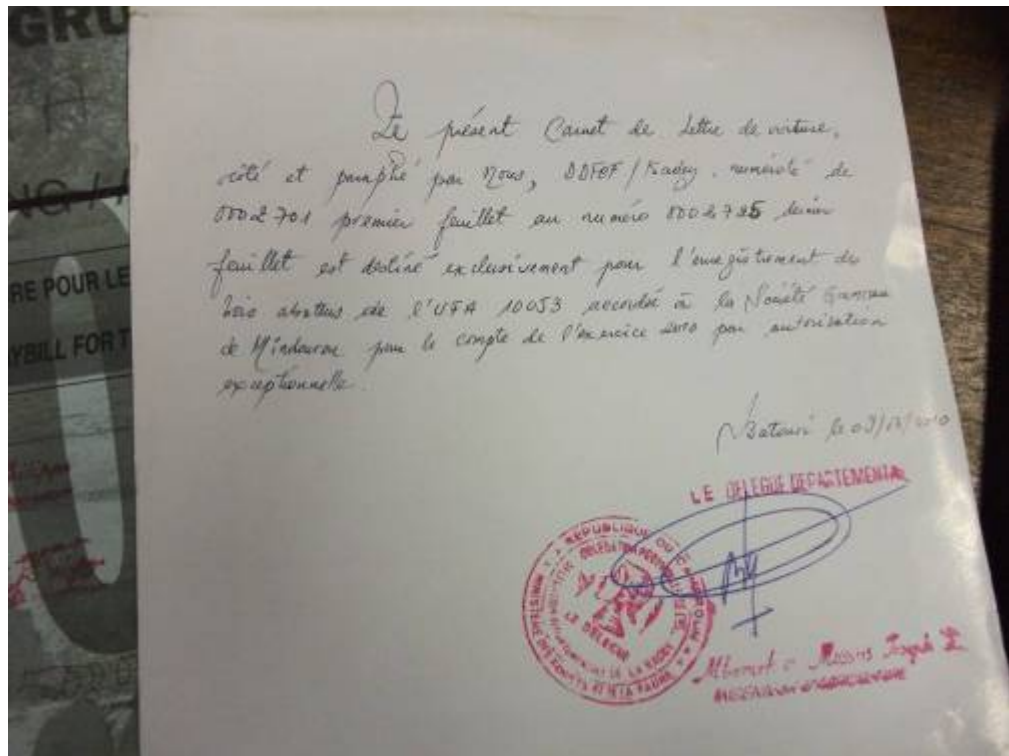 GRU
NG //
RE POUR LE
YBILL FOR T
Le présent Carnet de Lettre de voiture,
côté et paraphé par Nous, DDFOF / Kadey, numéroté de
0002701 premier feuillet au numéro 0002725 dernier
feuillet est destiné exclusivement pour l'enregistrement de
bois abattus de l'UFA 10053 accordée à la Société
de Mindourou pour le compte de l'exercice 2010 par autorisation
exceptionnelle.
Batouri le 09/12/2010
LE DELEGUE DEPARTEMENTAL
REPUBLIQUE DU CAMEROUN
MINISTERE DES FORETS ET DE LA FAUNE
LE DELEGUE
DE LA KADEY
Joseph